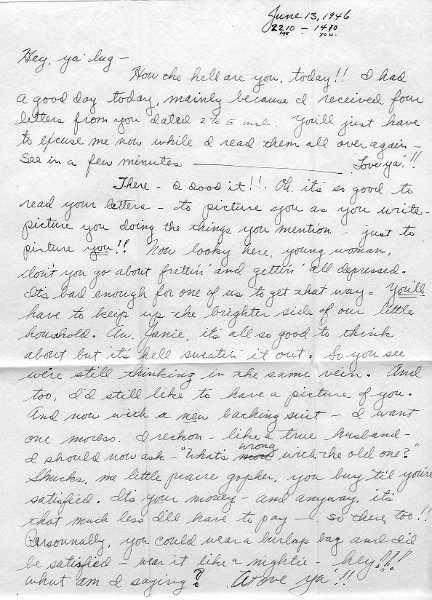 June 13, 1946
2210 – 1410
ME YOU.
Hey, ya' lug –
How the hell are you, today!! I had
a good day today, mainly because I received four
letters from you dated 2 & 5 incl. You'll just have
to excuse me now while I read them all over again –
See in a few minutes ———— Love ya'!!
There – I dood it!! Oh, it's so good to
read your letters – to picture you as you write –
picture you doing the things you mention – just to
picture you!! Now looky here, young woman,
don't you go about frettin' and gettin' all depressed.
It's bad enough for one of us to get that way. You'll
have to keep up the brighter side of our little
houshold. Aw, Janie, it's all so good to think
about but it's hell sweatin' it out. So you see
we're still thinking in the same vein. And
too, I'd still like to have a picture of you.
And now with a new bathing suit – I want
one moreso. I reckon – like a true husband –
I should now ask – "What's wrong with the old one?"
Shucks, me little prairie gopher, you buy 'til you're
satisfied. It's your money – and anyway, it's
that much less I'll have to pay – so there, too!!
Personally, you could wear a burlap bag and I'd
be satisfied – wear it like a nightie – hey!!!
what am I saying? Wove ya'!!